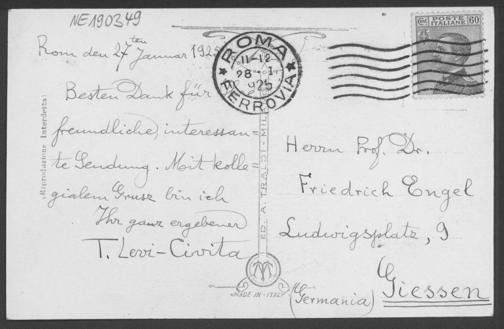 NE190349
Rom den 27ten Januar 1925
Besten Dank für
freundliche, interessan=
te Sendung. Mit kolle=
gialem Grusz bin ich
Ihr ganz ergebener
T. Levi-Civita
Riproduzione Interdetta
ROMA
11-12
28·I
925
FERROVIA
POSTE
ITALIANE
60
ED. A. TRALDI - MIL
MADE IN ITALY
Herrn Prof. Dr.
Friedrich Engel
Ludwigsplatz, 9
Giessen
(Germania)